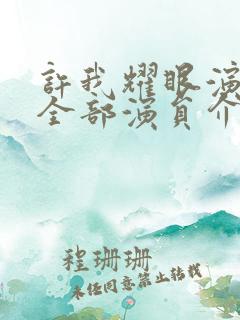 許我耀眼演
全部演員介
程珊珊
未经同意禁止转载